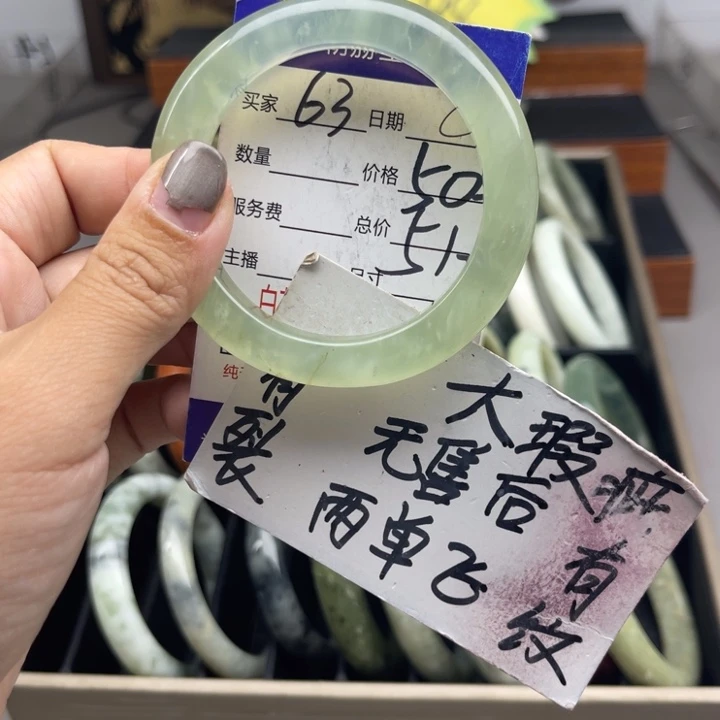 买家 63 日期
数量 价格 50
服务费 总价
主播 尺寸
有裂
大瑕疵
无售后
有纹
两单飞